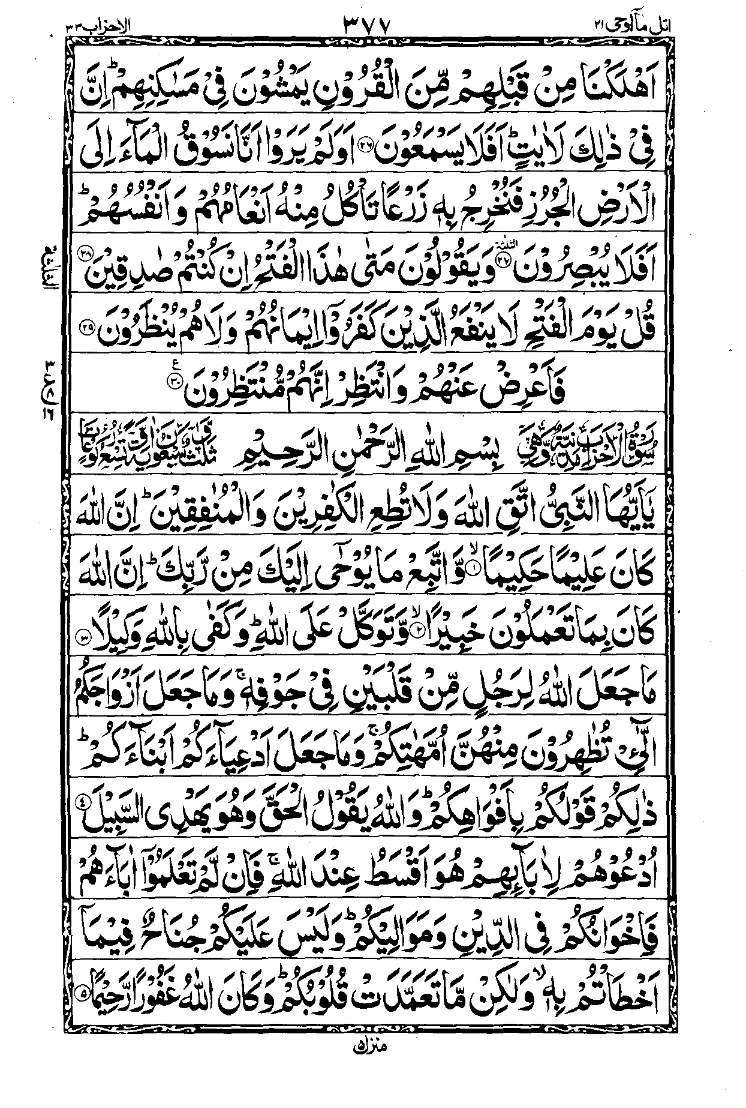 اتل مآاوحی ۲۱ ۳۷۷ الاحزاب ۳۳
اَهْلَكْنَا مِنْ قَبْلِهِمْ مِّنَ الْقُرُوْنِ يَمْشُوْنَ فِىْ مَسٰكِنِهِمْ ؕ اِنَّ
فِىْ ذٰلِكَ لَاٰيٰتٍ ؕ اَفَلَا يَسْمَعُوْنَ ۲۶ اَوَلَمْ يَرَوْا اَنَّا نَسُوْقُ الْمَآءَ اِلَى
الْاَرْضِ الْجُرُزِ فَنُخْرِجُ بِهٖ زَرْعًا تَاْكُلُ مِنْهُ اَنْعَامُهُمْ وَ اَنْفُسُهُمْ ؕ
اَفَلَا يُبْصِرُوْنَ ۲۷ وَيَقُوْلُوْنَ مَتٰى هٰذَا الْفَتْحُ اِنْ كُنْتُمْ صٰدِقِيْنَ ۲۸
قُلْ يَوْمَ الْفَتْحِ لَا يَنْفَعُ الَّذِيْنَ كَفَرُوْۤا اِيْمَانُهُمْ وَلَا هُمْ يُنْظَرُوْنَ ۲۹
فَاَعْرِضْ عَنْهُمْ وَانْتَظِرْ اِنَّهُمْ مُّنْتَظِرُوْنَ ۳۰
سُوْرَةُ الْاَحْزَابِ مَدَنِيَّةٌ وَّهِىَ بِسْمِ اللّٰهِ الرَّحْمٰنِ الرَّحِيْمِ ثَلٰثٌ وَّسَبْعُوْنَ اٰيَةً وَّتِسْعُ رُكُوْعَاتٍ
يٰۤاَيُّهَا النَّبِىُّ اتَّقِ اللّٰهَ وَلَا تُطِعِ الْكٰفِرِيْنَ وَالْمُنٰفِقِيْنَ ؕ اِنَّ اللّٰهَ
كَانَ عَلِيْمًا حَكِيْمًا ۙ ۱ وَّاتَّبِعْ مَا يُوْحٰۤى اِلَيْكَ مِنْ رَّبِّكَ ؕ اِنَّ اللّٰهَ
كَانَ بِمَا تَعْمَلُوْنَ خَبِيْرًا ۙ ۲ وَّتَوَكَّلْ عَلَى اللّٰهِ ؕ وَكَفٰى بِاللّٰهِ وَكِيْلًا ۳
مَا جَعَلَ اللّٰهُ لِرَجُلٍ مِّنْ قَلْبَيْنِ فِىْ جَوْفِهٖ ۚ وَمَا جَعَلَ اَزْوَاجَكُمُ
الّٰٓـئِْ تُظٰهِرُوْنَ مِنْهُنَّ اُمَّهٰتِكُمْ ۚ وَمَا جَعَلَ اَدْعِيَآءَكُمْ اَبْنَآءَكُمْ ؕ
ذٰلِكُمْ قَوْلُكُمْ بِاَفْوَاهِكُمْ ؕ وَاللّٰهُ يَقُوْلُ الْحَقَّ وَهُوَ يَهْدِى السَّبِيْلَ ۴
اُدْعُوْهُمْ لِاٰبَآئِهِمْ هُوَ اَقْسَطُ عِنْدَ اللّٰهِ ۚ فَاِنْ لَّمْ تَعْلَمُوْۤا اٰبَآءَهُمْ
فَاِخْوَانُكُمْ فِى الدِّيْنِ وَمَوَالِيْكُمْ ؕ وَلَيْسَ عَلَيْكُمْ جُنَاحٌ فِيْمَاۤ
اَخْطَاْتُمْ بِهٖ ۙ وَلٰكِنْ مَّا تَعَمَّدَتْ قُلُوْبُكُمْ ؕ وَكَانَ اللّٰهُ غَفُوْرًا رَّحِيْمًا ۵
منزل ۵